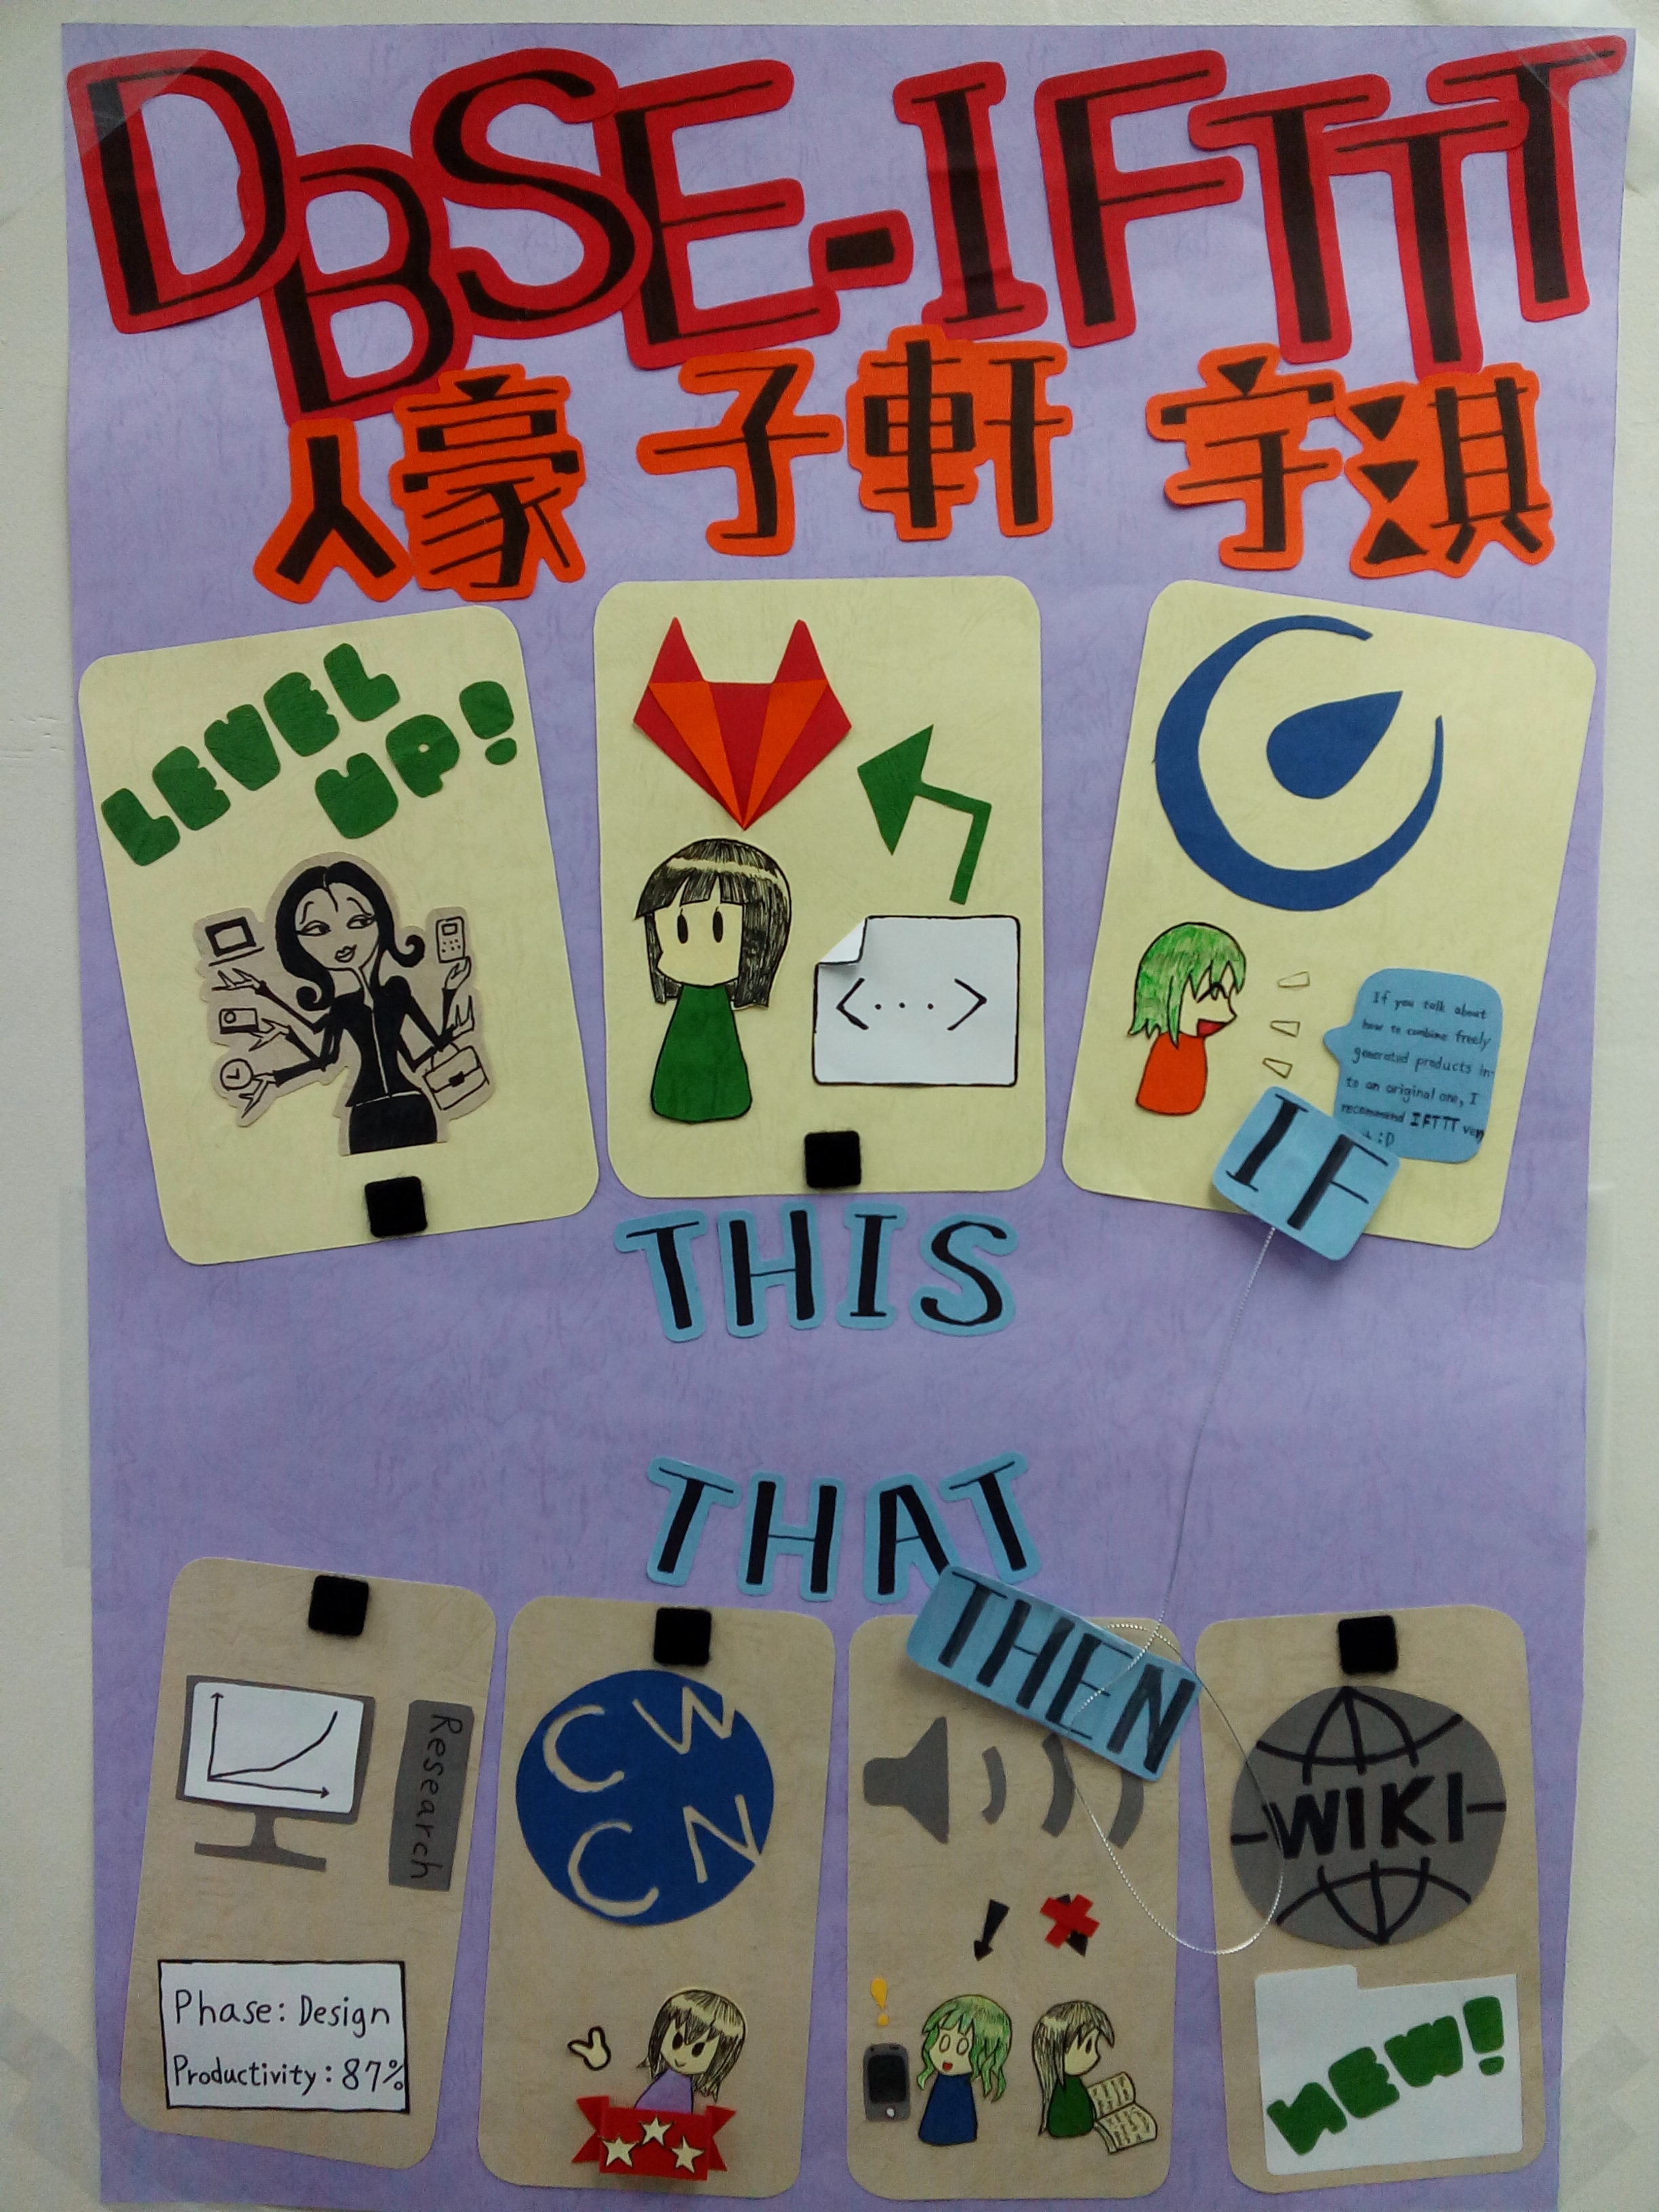 DBSE-IFTTT
人豪 子軒 宇淇
LEVEL
UP!
<...>
If you talk about
how to combine freely
generated products in-
to an original one, I
recommend IFTTT very
:D
IF
THIS
THAT
THEN
Research
Phase: Design
Productivity: 87%
CW
CN
WIKI
NEW!